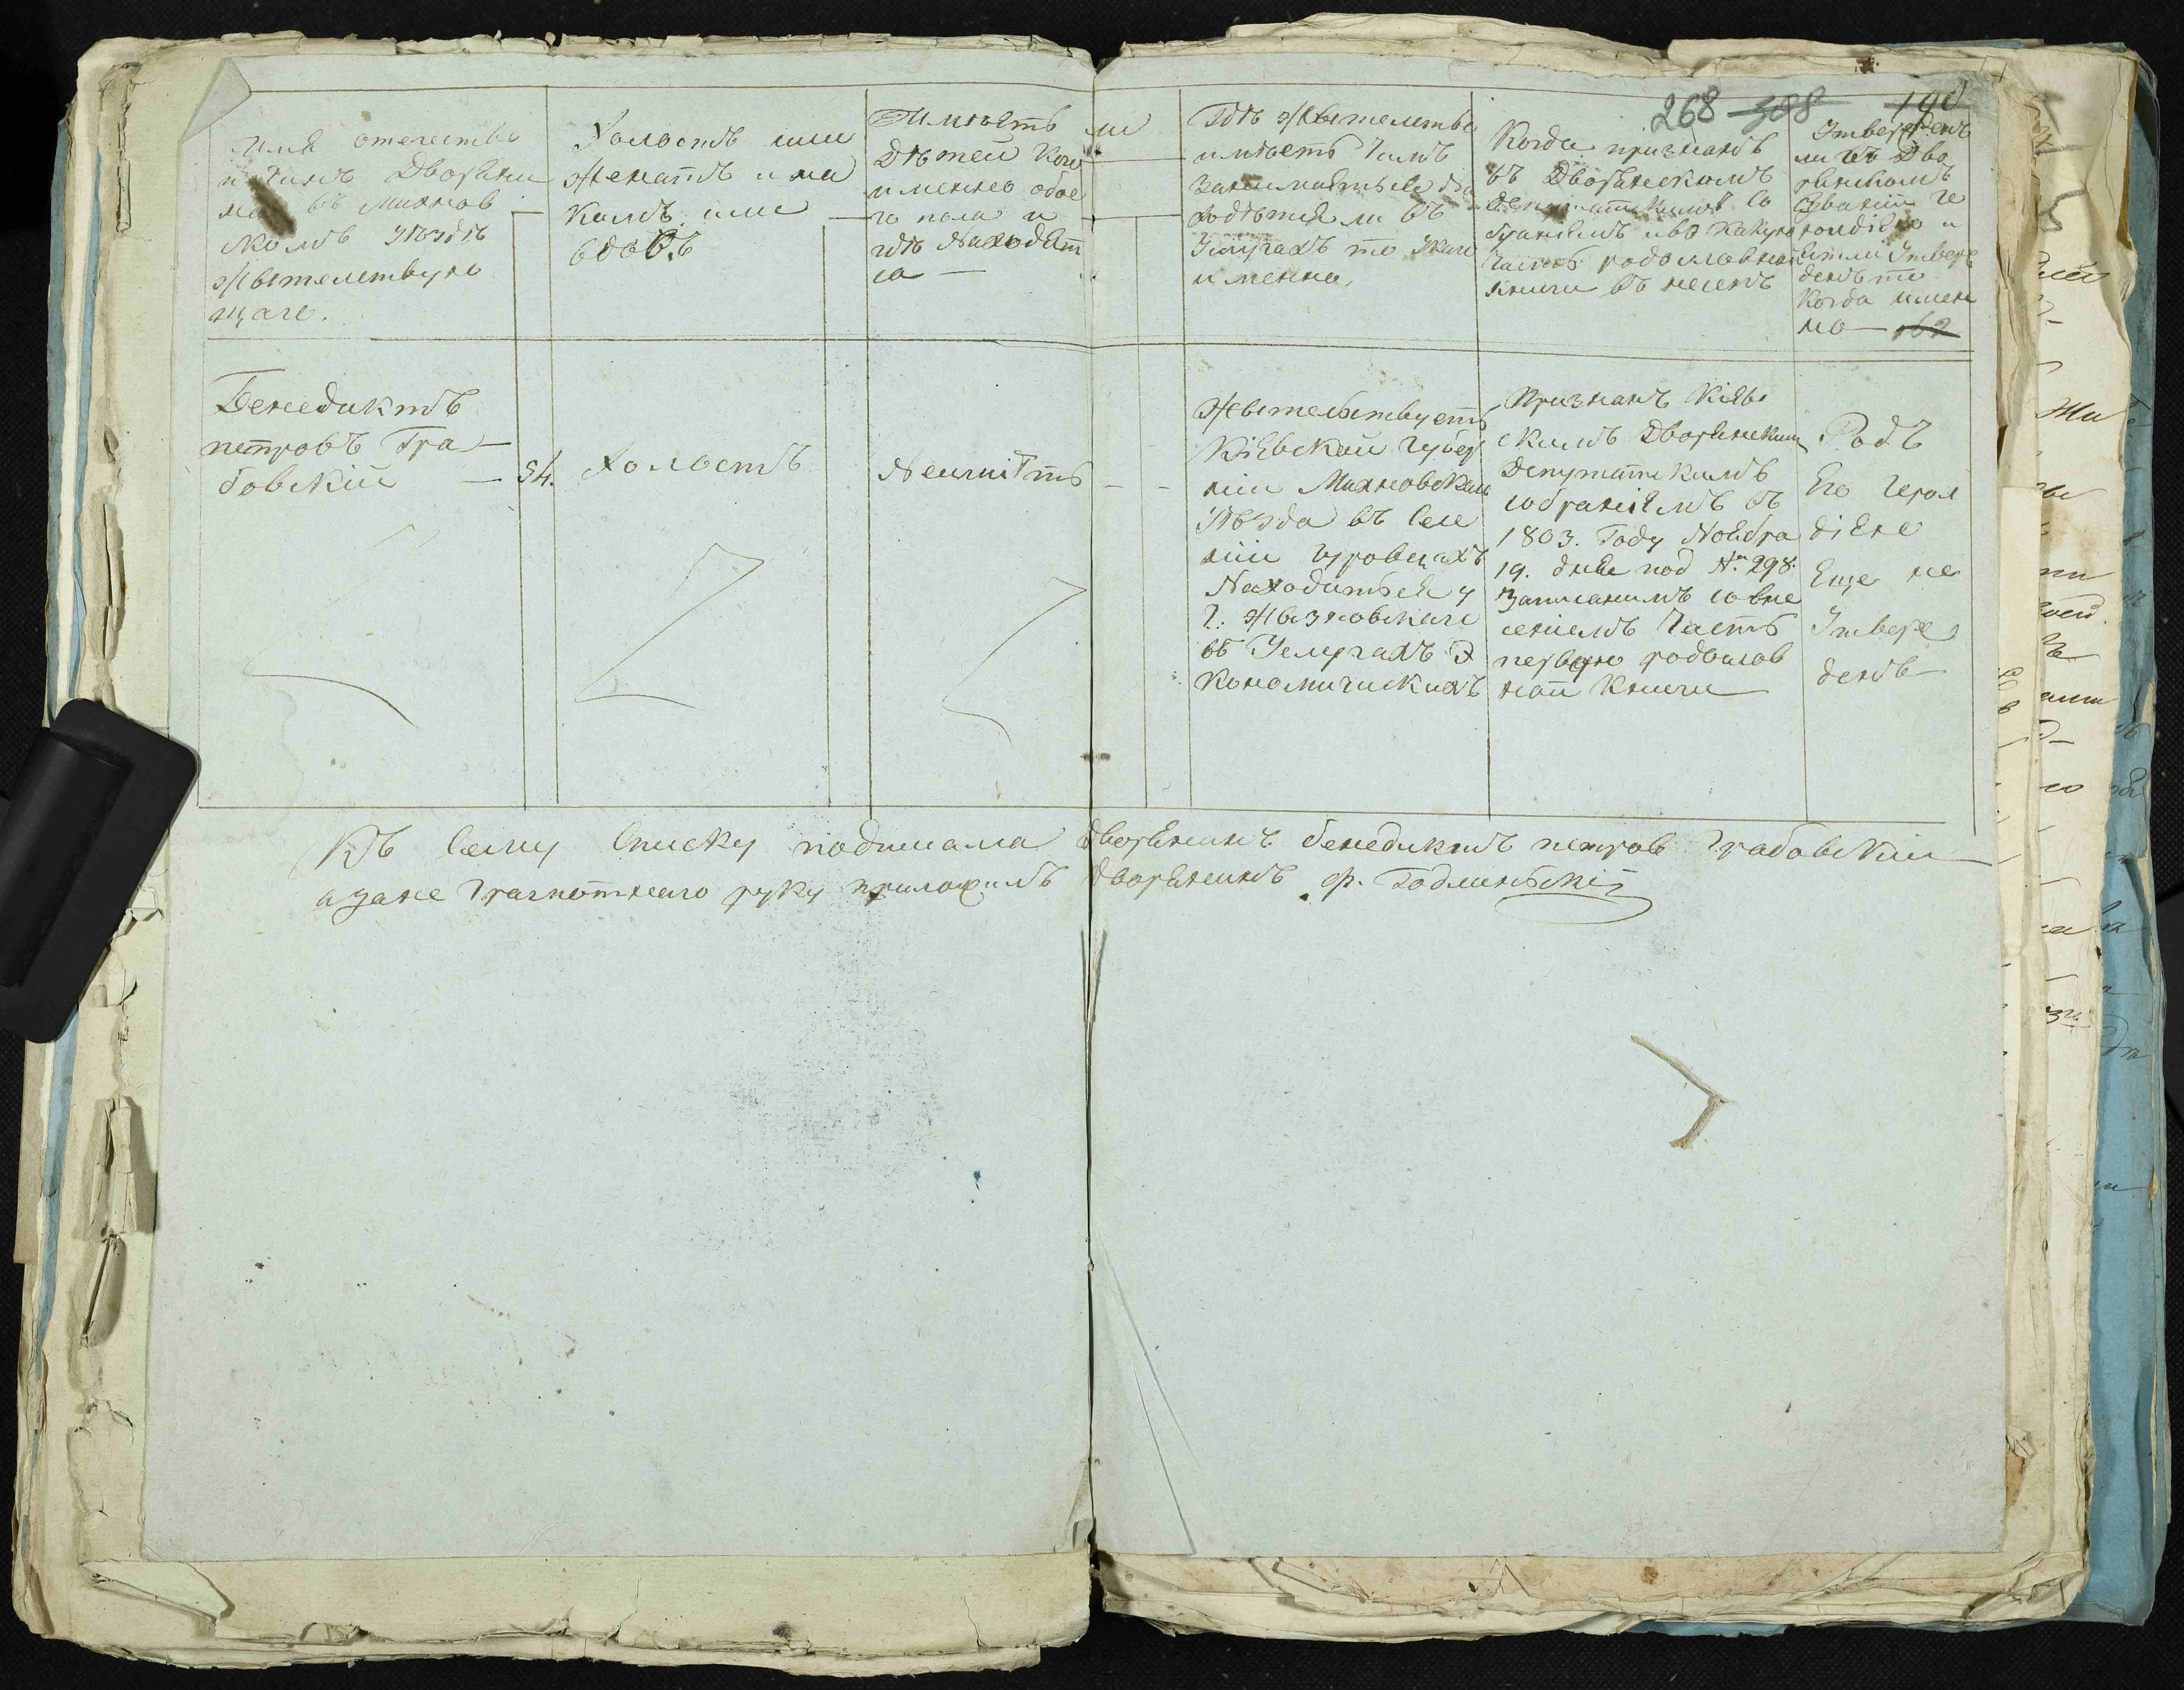 268 308 190
Имя отечество
и Чинъ Дворяни
на въ Махнов
скомъ Уѣздѣ
Жытелствую
щаго.
Холостъ или
Женатъ и на
комъ или
вдовъ
Имѣетъ ли
Дѣтей Кого
именно обое
го пола и
гдѣ Находят
ся —
Гдѣ Жытелство
имѣетъ Чимъ
Занимаетъся
Уелугахъ то Укого
именно,
Когда признанъ
въ Дворянскомъ
Депутатскимъ Со
браніемъ и во какую
Часть родословной
Книги въ несенъ
Утвержденъ
ли въ Дво
рянскомъ
Званіи Ге
рольдіею и
Если Утверж
денъ то
Когда имен
но — 162
Бенедиктъ
петровъ Гра—
бовскій —
54.
Холостъ
Неимѣетъ — —
Жытельствуетъ
Кіевской Губер
ніи Махновскаго
Уѣзда въ Селе
ніи Чуровцахъ
Находитъся у
Г: Жызновскаго
въ Уелугахъ Э
кономическихъ
Признанъ Кіев
скимъ Дворянским
Депутатскимъ
Собраніемъ въ
1803. Году Ноября
19. дня под №. 298.
Записанимъ Совне
сеніемъ Часть
первую родослов
ной Книги
Родъ
Его Герол
діею
Еще не
Утверж
денъ
Къ Сему Списку подписала Дворянинъ бенедиктъ петров Грабовский
а зане Грамотнаго руку приложилъ Дворянинъ Ф. Годлинский